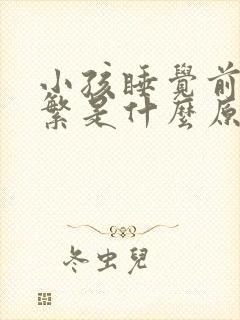 小孩睡覺前
繁是什麼原
冬虫兒